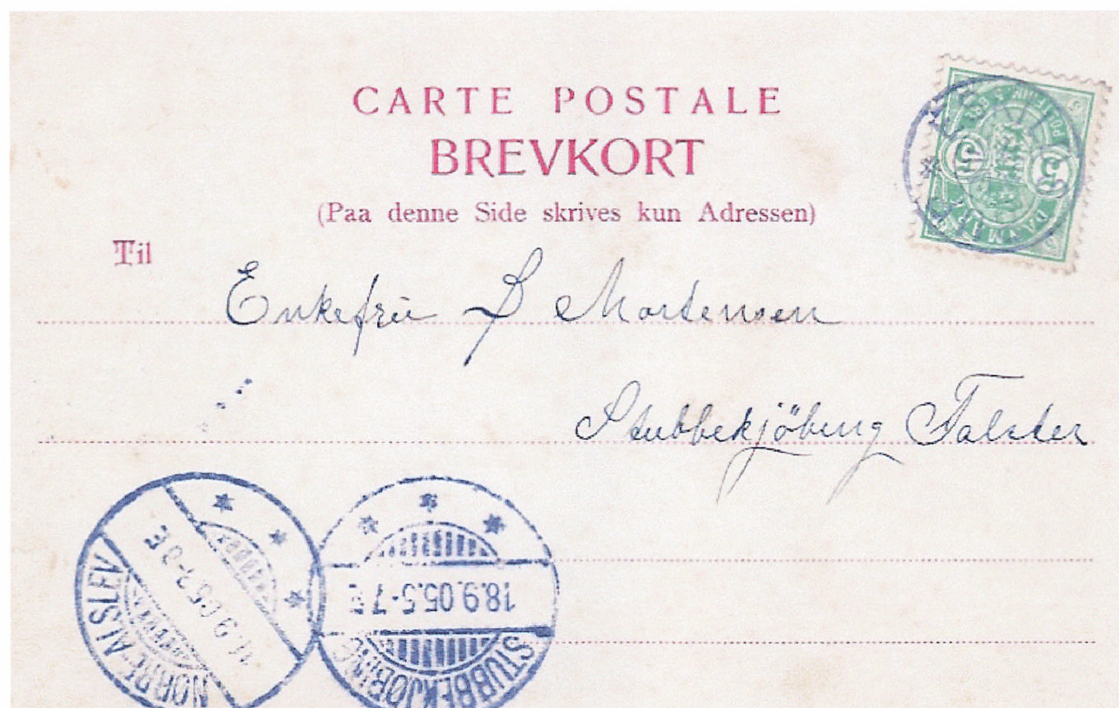 CARTE POSTALE
BREVKORT
(Paa denne Side skrives kun Adressen)
Til
Enkefru B Mortensen
Stubbekjöbing Falster
NØRRE-ALSLEV
18.9.05.5-7 E
STUBBEKJØBING
DANMARK
5 5